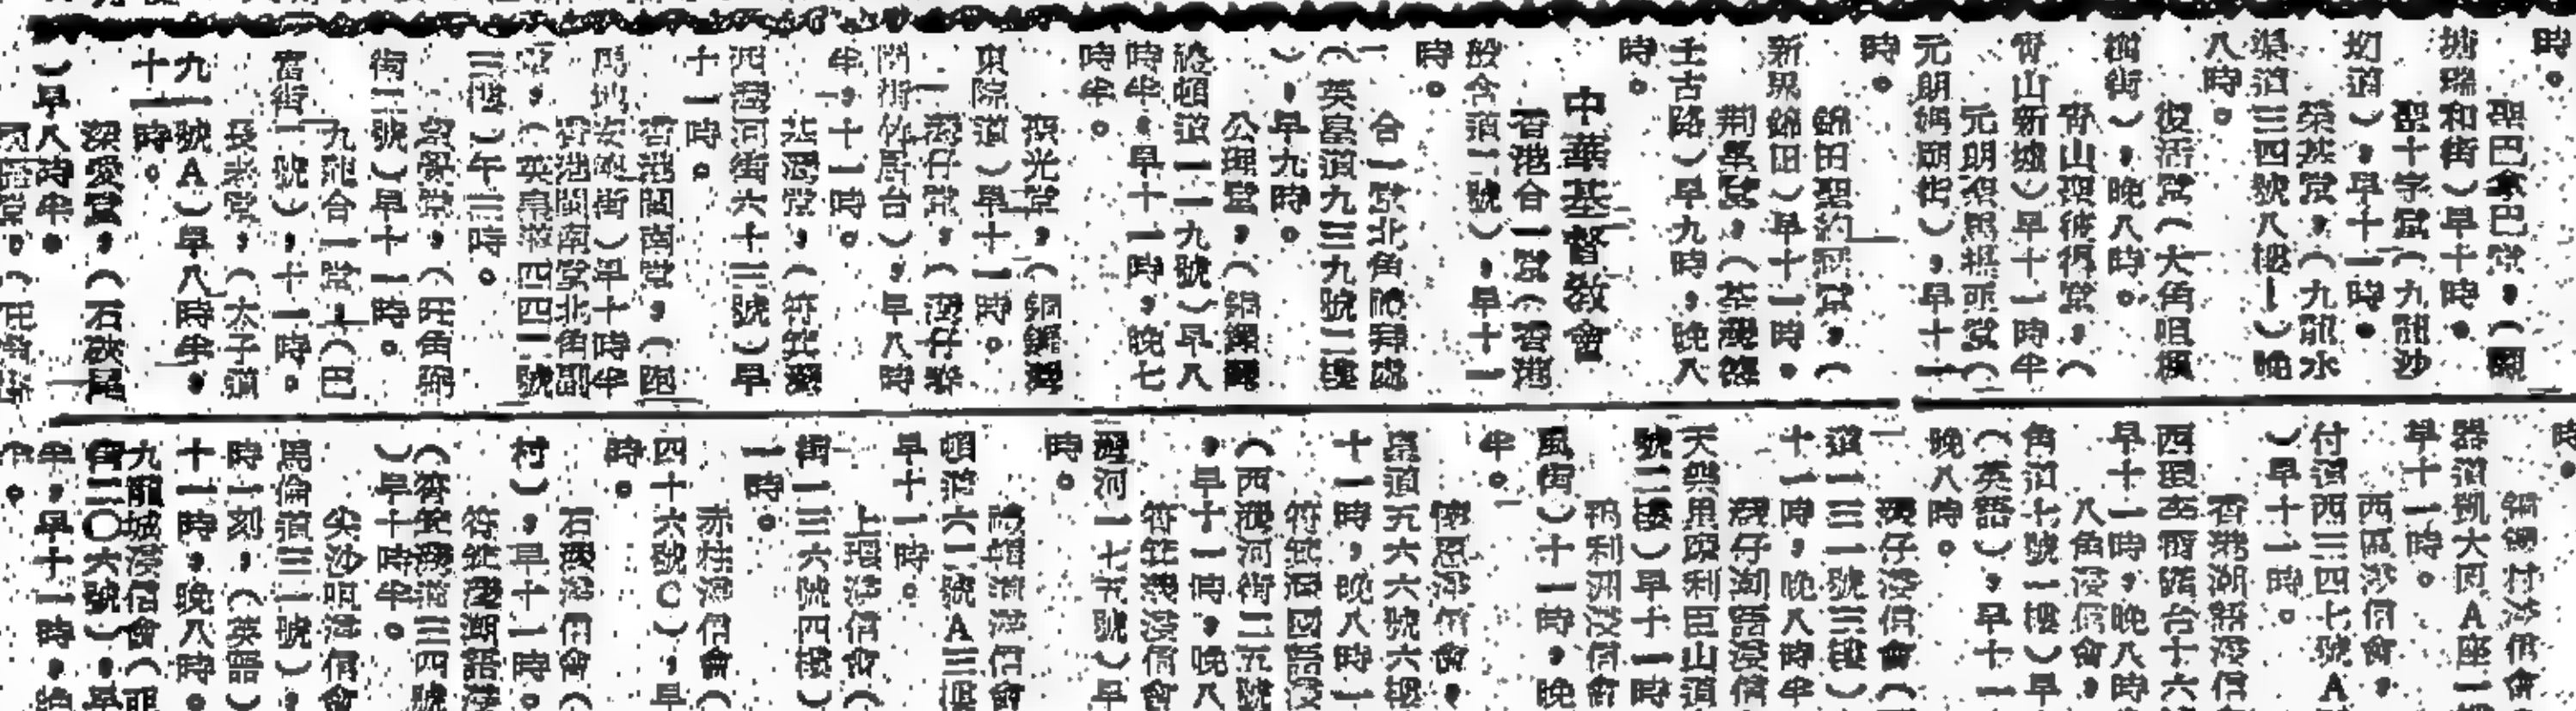 時。
聖巴拿巴堂，（觀
塘瑞和街）早十時。
聖十字堂（九龍沙
初道），早十一時。
榮基堂，（九龍水
渠道三四號八樓）晚
八時。
復活堂（大角咀楓
樹街），晚八時。
青山聖彼得堂，（
青山新墟）早十一時半
元朗
元朗媽廟街），早十一
時。
錦田聖約翰堂，（
新界錦田）早十一時。
荆冕堂，（荃灣德
士古路）早九時，晚八
時。
中華基督敎會
香港合一堂（香港
般含道二號），早十一
時。
合一堂北角禮拜處
（英皇道九三九號二樓
），早九時。
公理堂，（銅鑼灣
禮頓道一一九號）早八
時半。早十一時，晚七
時半。
撲光堂，（銅鑼灣
東院道）早十一時。
灣仔堂，（灣仔
街竹居台），早八時
半，十一時。
基灣堂，（筲箕灣
西灣河街六十三號）早
十一時。
香港閩南堂，（跑
馬地安興街）早十時半
香港閩南堂北角副
堂，（英皇道四四一號
三樓）午三時。
望覺堂，（旺角弼
街二號）早十一時。
九龍合一堂，（巴
富街一號），十一時。
長老堂，（太子道
九一號A）早八時半，
十一時。
深愛堂，（石硤尾
）早八時半。
時。
銅鑼灣浸信會
器道凱大厦A座一
早十一時。
西區浸信會，
付道西三四七號A
）早十一時。
香港潮語浸信
西環李寶龍台十六
早十一時，晚八時
八角浸信會，
角道七號一樓）早
（英語），早十一
晚八時。
灣仔浸信會（
道一三一號三樓）
十一時，晚八時半
灣仔潮語浸信
天樂里摩利臣山道
號二樓）早十一時
鴨利洲浸信會
風街）十一時，晚
半。
懷恩浸信會，
皇道五六六號六樓
十一時，晚八時一
筲箕灣國語浸
（西灣河街二五號
，早十一時，晚八
筲箕灣浸信會
灣河一七五號）早
時。
禮頓道浸信會
頓道六二號A三樓
早十一時。
上環浸信會（
街一三六號四樓）
一時。
赤柱浸信會（
四十六號C），早
時。
石澳浸信會（
村），早十一時。
筲箕灣潮語浸
（筲箕灣道三四號
）早十時半。
尖沙咀浸信會
馬倫道三一號），
時一刻，（英語）
十一時，晚八時。
九龍城浸信會（亞
二〇六號），早
半，早十一時，